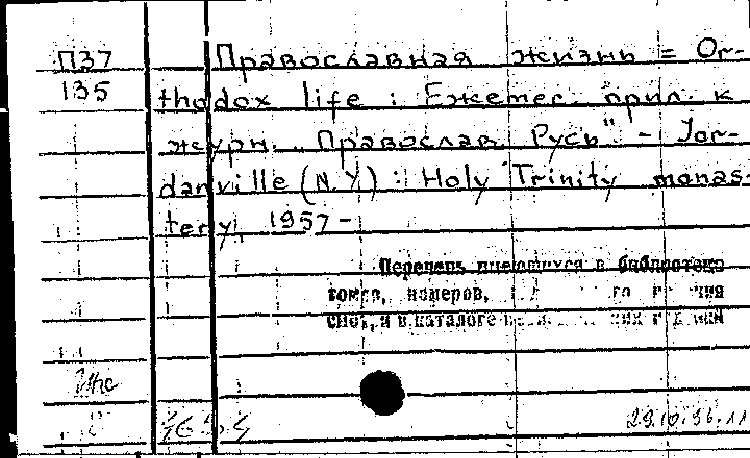 П37 Православная жизнь = Or-
135 thodox life : Ежемес. прил. к
журн. „Православ. Русь" - Jor-
danville (N.Y.) : Holy Trinity monas-
tery, 1957 -
Перечень имеющихся в библиотеке
томов, номеров,
смот, и в каталоге
29.10.96.11